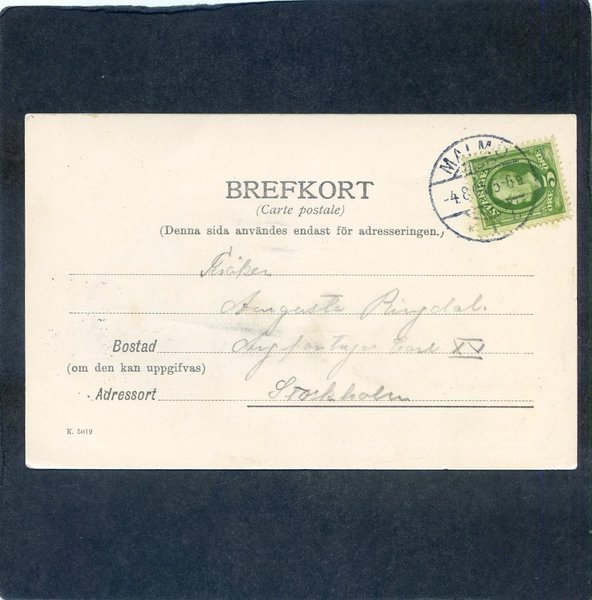 BREFKORT
(Carte postale)
(Denna sida användes endast för adresseringen.)
MALMÖ
-4.8
5-6 E
SVERIGE
5
Fröken
Augusta Ringdal.
Bostad
XV
(om den kan uppgifvas)
Adressort Stockholm
K. 5019